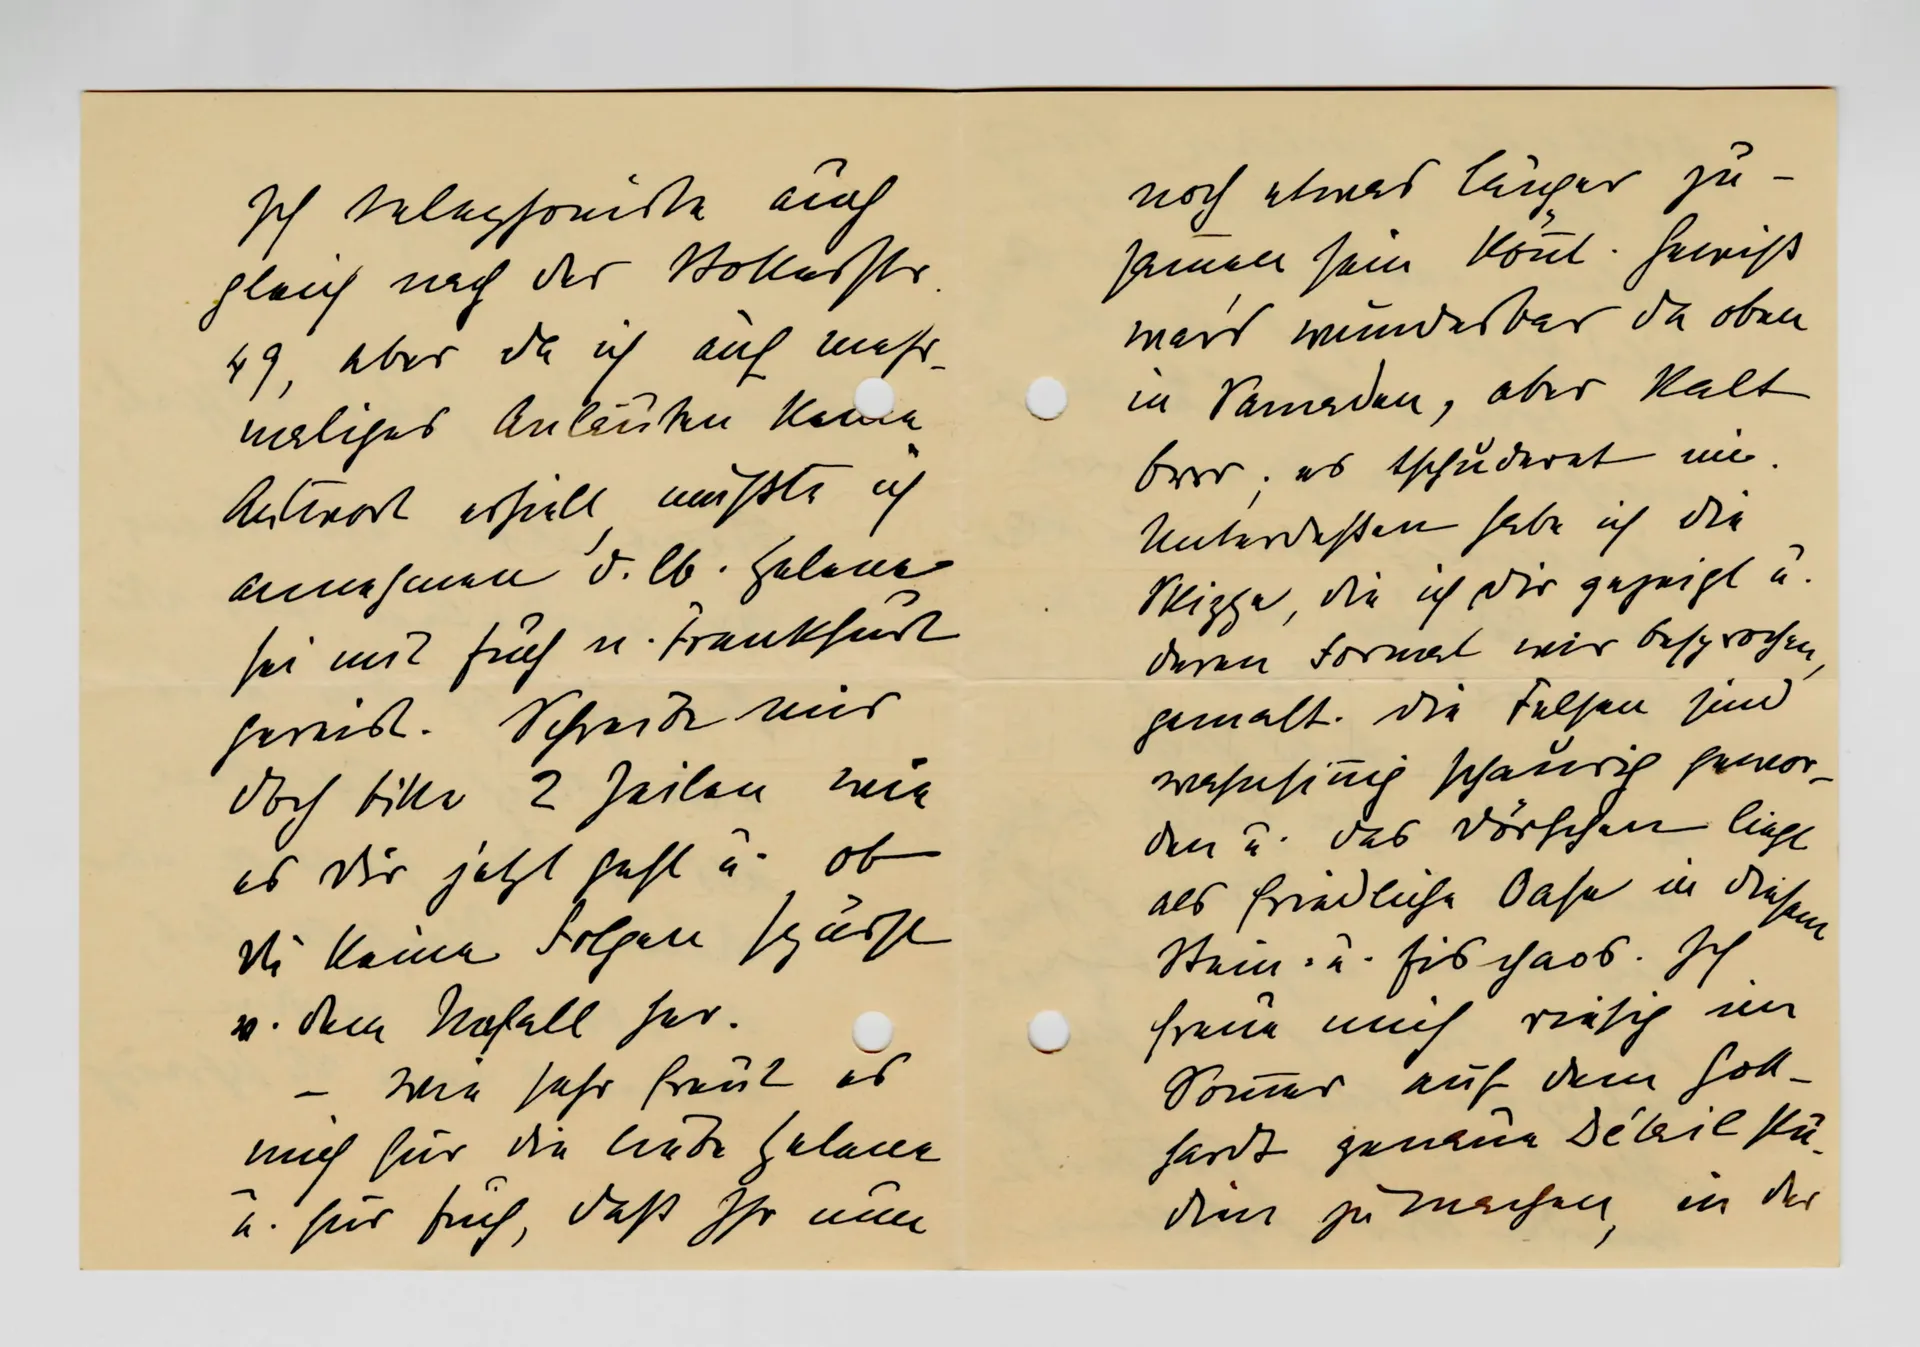 Ich telephonierte auch
gleich nach der Stokerstr.
49, aber da ich auf mehr-
maliges Anläuten keine
Antwort erhielt, mußte ich
annehmen d. lb. Helene
sei mit Euch n. Frankfurt
gereist. Schreibe mir
doch bitte 2 Zeilen wie
es Dir jetzt geht u. ob
Du keine Folgen spürst
v. dem Unfall her.
– Wie sehr freut es
mich für die liebe Helene
u. für Euch, daß Ihr nun
noch etwas länger zu-
samen sein könt. Gewiß
war's wunderbar da oben
in Samaden, aber kalt
brrr, es tschuderet mi.
Unterdeßen habe ich die
Skizze, die ich Dir gezeigt u.
deren Format wir besprochen,
gemalt. Die Felsen sind
wahnsinig schaurig gewor-
den u. das Dörfchen liegt
als friedliche Oase in diesem
Stein- u. Eischaos. Ich
freue mich riesig im
Somer auf dem Gott-
hardt genaue Détail Stu-
dien zu machen, in der